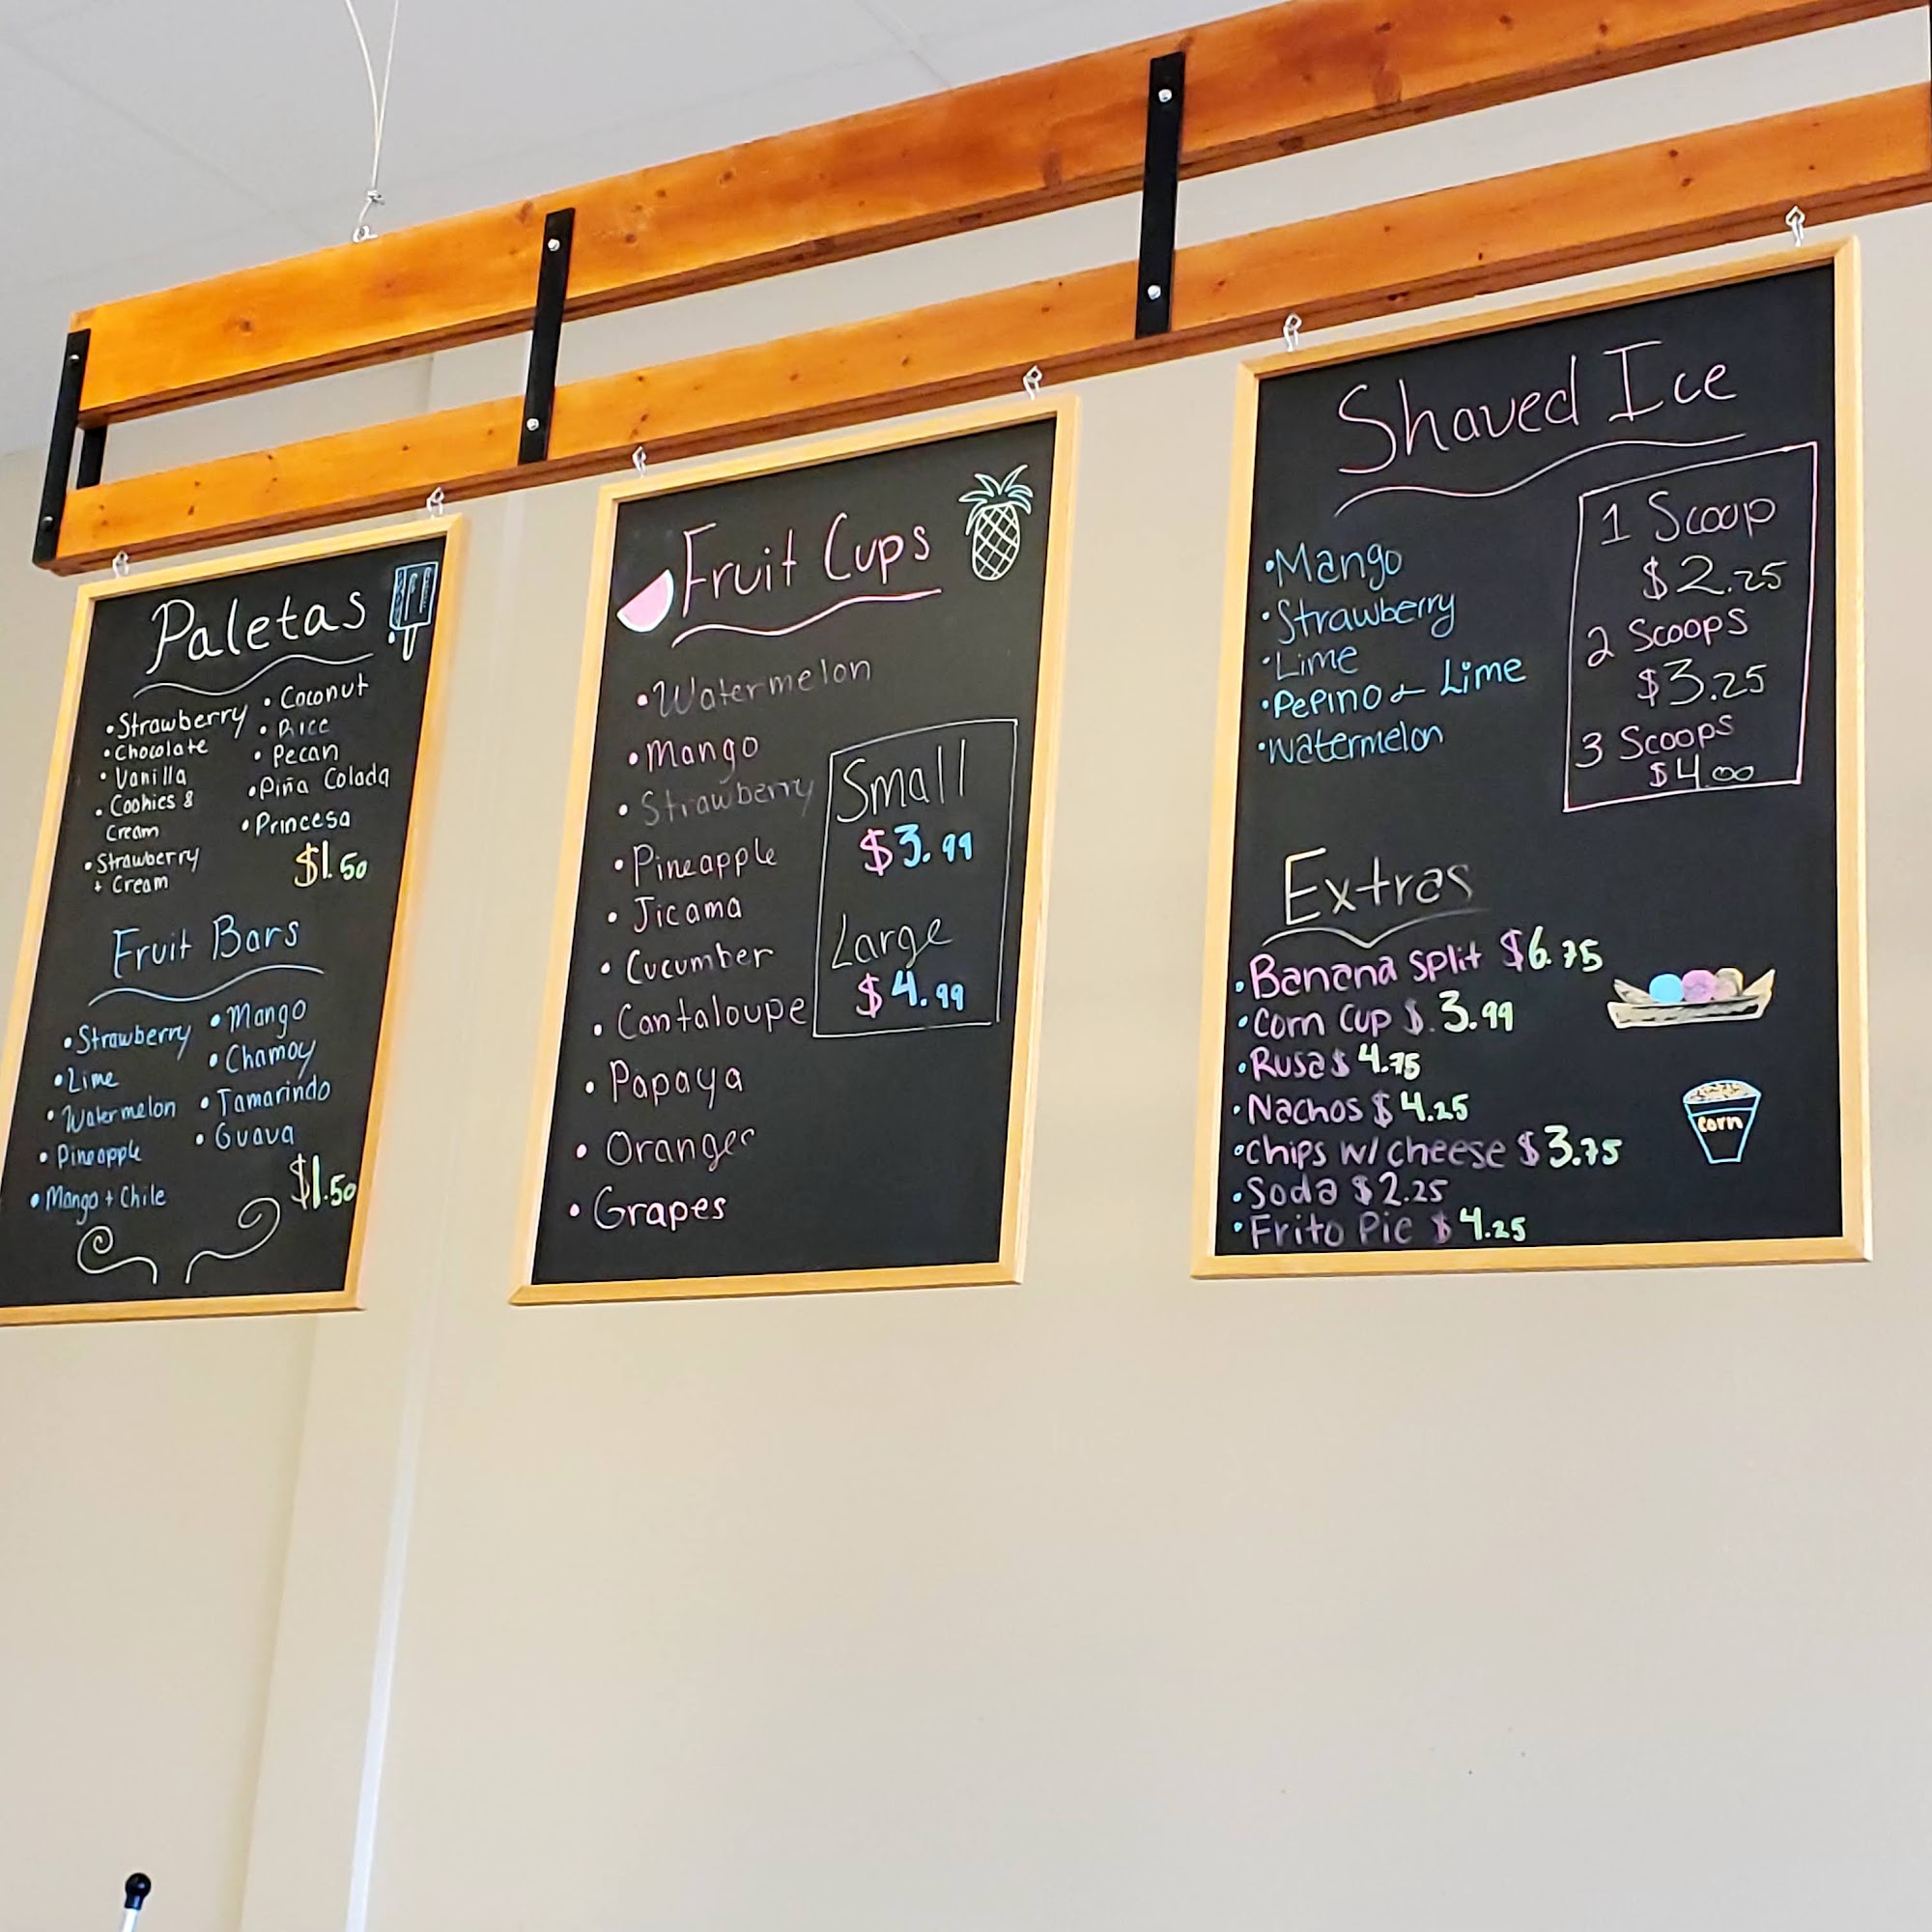 Paletas
• Strawberry
• Chocolate
• Vanilla
• Cookies &
Cream
• Strawberry
+ Cream
• Coconut
• Rice
• Pecan
• Piña Colada
• Princesa
$1.50
Fruit Bars
• Strawberry
• Lime
• Watermelon
• Pineapple
• Mango + Chile
• Mango
• Chamoy
• Tamarindo
• Guava
$1.50
Fruit Cups
• Watermelon
• Mango
• Strawberry
• Pineapple
• Jicama
• Cucumber
• Cantaloupe
• Papaya
• Oranges
• Grapes
Small
$3.99
Large
$4.99
Shaved Ice
• Mango
• Strawberry
• Lime
• Pepino + Lime
• Watermelon
1 Scoop
$2.25
2 Scoops
$3.25
3 Scoops
$4.00
Extras
• Banana split $6.75
• Corn Cup $.3.99
• Rusa $4.75
• Nachos $4.25
• Chips w/ cheese $3.75
• Soda $2.25
• Frito Pie $4.25
corn